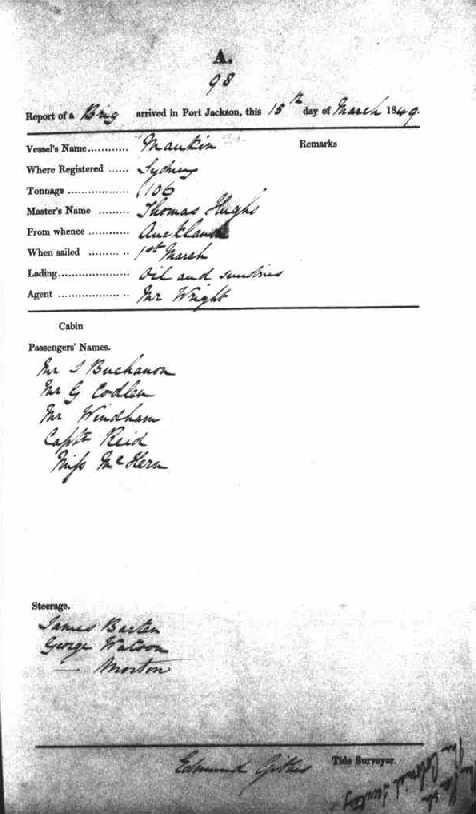 A.
98
Report of a Brig arrived in Port Jackson, this 15th day of March 1849.
Vessel's Name............ Maukin Remarks
Where Registered ...... Sydney
Tonnage .................. 106
Master's Name ......... Thomas Hughs
From whence ............ Auckland
When sailed ............ 1st March
Lading..................... Oil and sundries
Agent ..................... Mr Wright
Cabin
Passengers' Names.
Mr J Buchanon
Mr G Codlin
Mr Windham
Captn Reid
Miss McHern
Steerage.
James Barton
George Watson
—— Morton
Edmund Tide Surveyor.
The Colonial